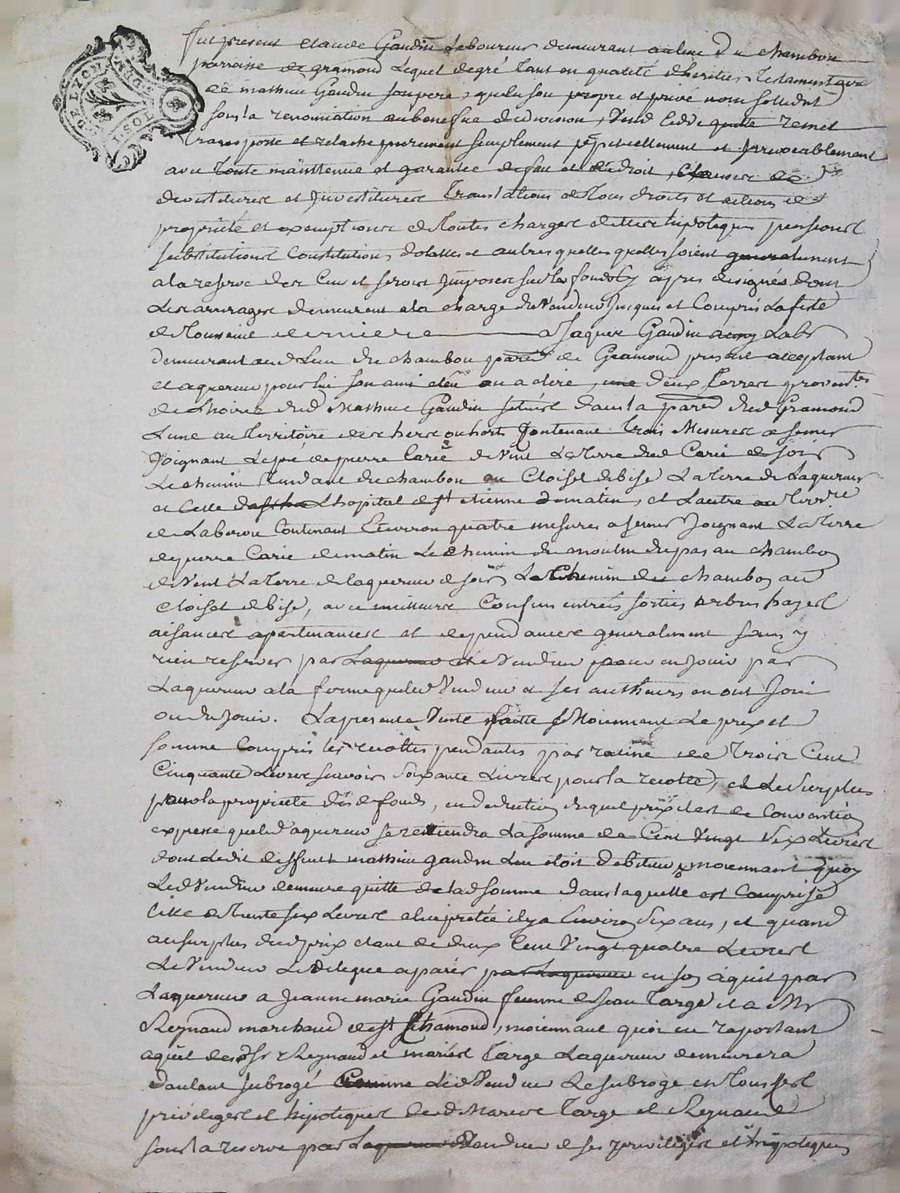 LYON
SOLS
Fut present claude Gaudin Laboureur demeurant au lieu du chambon
parroisse de gramond Lequel de gré tant en qualité d'heritier Testamentaire
de mathieu Gaudin son pere, que de son propre et privé nom solidairement
sous la renonciation au benefice de division, Vend Cedde quitte remet
transporte et relache purement simplement perpetuellement et Irrevocablement
avec toute maintenue et garantie de fait et de droit, Clauses de
devestitures et Investitures Translations de tous droits et actions de
proprieté et exemptions de toutes charges dettes hipoteques pensions
substitutions Constitutions dolattes et autres quelles quelles soient generalement
a la reserve des Cens et servis Imposés sur les fonds cy apres designés dont
Les arrerages demeurent a la charge du Vendeur Jusques et Compris La feste
de Noel derniere a Jaques Gaudin Lab
demeurant aud Lieu du chambon par de Gramond present acceptant
et aquereur pour lui son ami eleu ou a elire, deux terres provenantes
de l'hoirie dud Mathieu Gaudin situées dans la par dud Gramond
Lune au territoire de Contenant Trois Mesures a semer
Joignant Le pré de pierre Carié de Vent La terre dud Carié de soir
Le chemin tendant du chambon au Cloisel de bise La terre de Laquereur
et Celle de Lhopital de st etienne de matin, et Lautre au territoire
de Laboron Contenant Environ quatre mesures a semer Joignant La terre
de pierre Carié de matin Le chemin du moulin du pas au chambon
de Vent La terre de laquereur de soir Le Chemin du chambon au
Cloisel de bise, avec meilleurs Confins entrées sorties arbres hayes
aisances apartenances et dependances generalement sans y
rien reserver par Le Vendeur pour en Jouir par
Laquereur a la forme que led Vendeur et ses autheurs en ont Joui
ou du Jouir. La presente Vente faitte Moiennant Le prix et
somme Compris les recoltes pendantes par racine de Trois Cent
Cinquante Livres scavoir soixante Livres pour la recolte, et Le surplus
pour la proprieté desd fonds, en deduction duquel prix il est de Convention
expresse que led aquereur se retiendra La somme de Cent Vingt six Livres
dont Ledit deffunt mathieu gaudin Lui etoit debiteur moiennant quoy
Led Vendeur demeure quitte de lad somme dans laquelle est Comprise
Celle de trente six Livres a lui pretée il y a Environ six ans, et quand
au surplus dud prix etant de deux Cent Vingt quatre Livres
Le Vendeur Le delegue a paier en son aquit par
Laquereur a Jeanne marie Gaudin femme de Jean Targe et a Mr
Reynaud marchand de st Chamond, moiennant quoi en raportant
aquit desd Sr Reynaud et mariés Targe Laquereur demeurera
dautant subrogé Comme Led Vendeur Le subroge en tous les
privileges et hipoteques desd Mariés Targe et Reynaud
sous la reserve par Vendeur de ses privileges et hipoteques